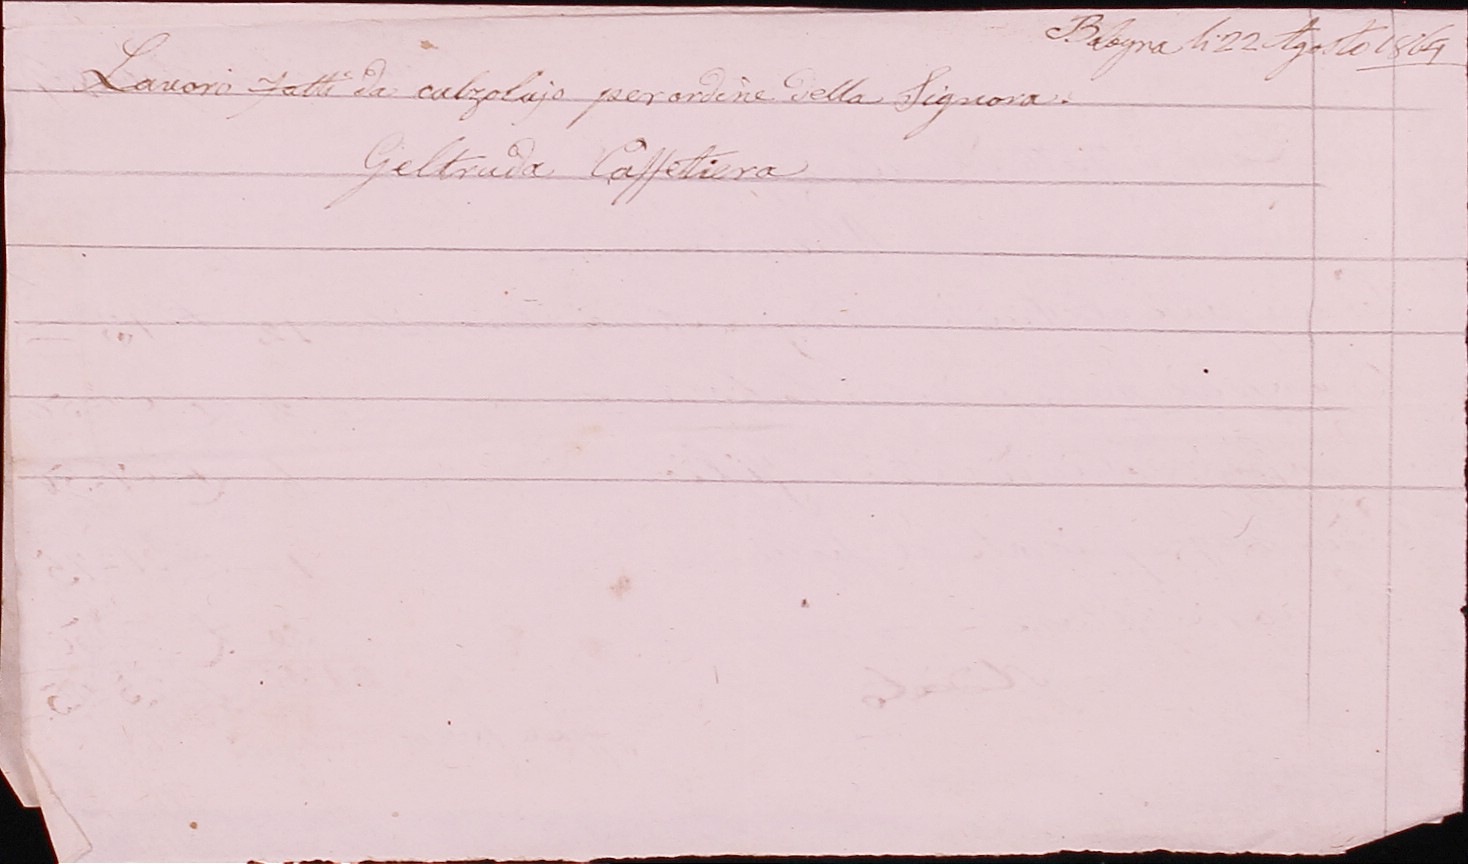 Bologna li 22 Agosto 1864
Lavori fatti da calzolajo per ordine della Signora.
Geltruda Caffettiera